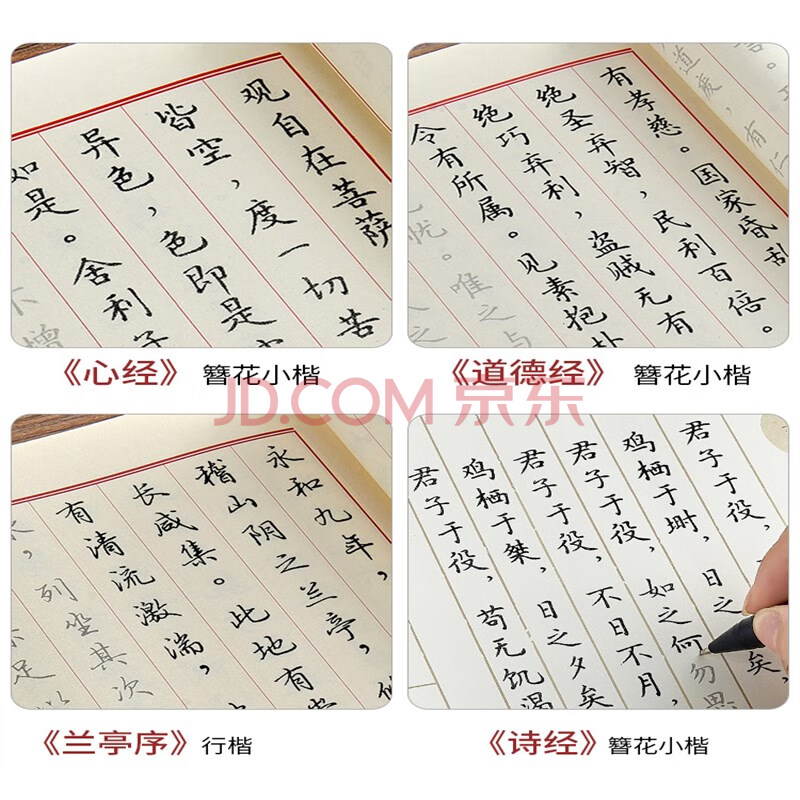 观自在菩萨
皆空,度一切苦
异色,色即是
如是。舍利子
不增
《心经》 簪花小楷
有孝慈。国家昏乱
绝圣弃智,民利百倍。
绝巧弃利,盗贼无有
令有所属。见素抱朴
忧。唯之与
道废,有仁
《道德经》 簪花小楷
JD.COM 京东
永和九年,
稽山阴之兰亭,
长咸集。此地有
有清流激湍,
列坐其次
足以
《兰亭序》 行楷
君子于役,
鸡栖于埘,日之夕矣,
君子于役,如之何勿思
君子于役,不日不月,
鸡栖于桀,日之夕矣
君子于役,苟无饥渴
《诗经》 簪花小楷